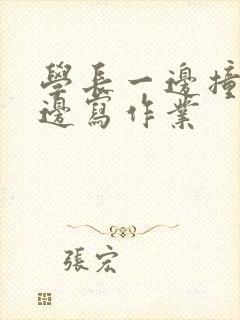 學長一邊撞
邊寫作業
張宏